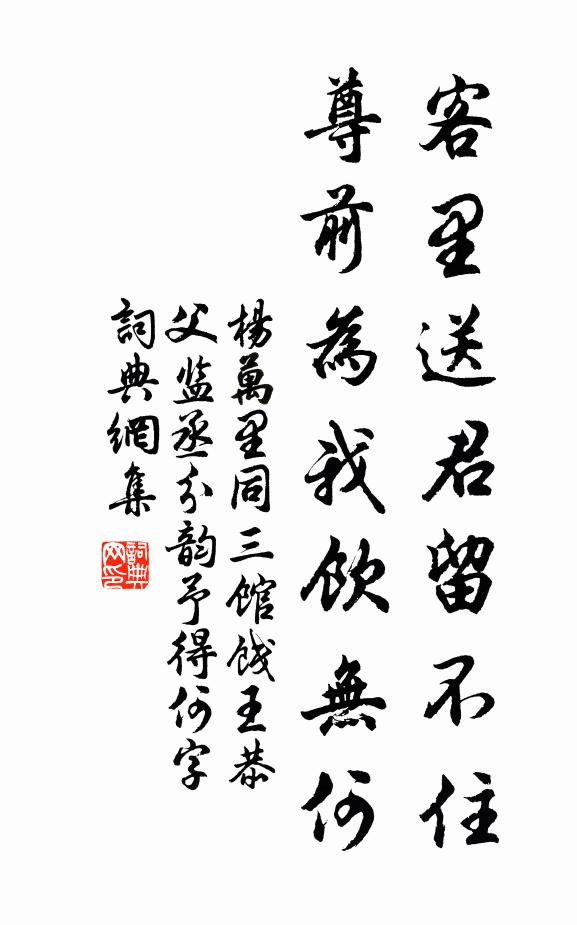 客里送君留不住
尊前為我飲無何
楊萬里同三館餞王恭
父监丞分韵予得何字
詞典網集
詞典网印